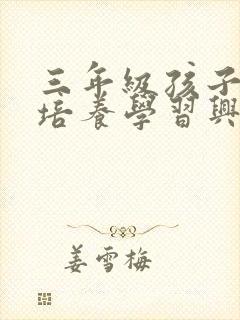 三年級孩子
培養學習興
姜雪梅